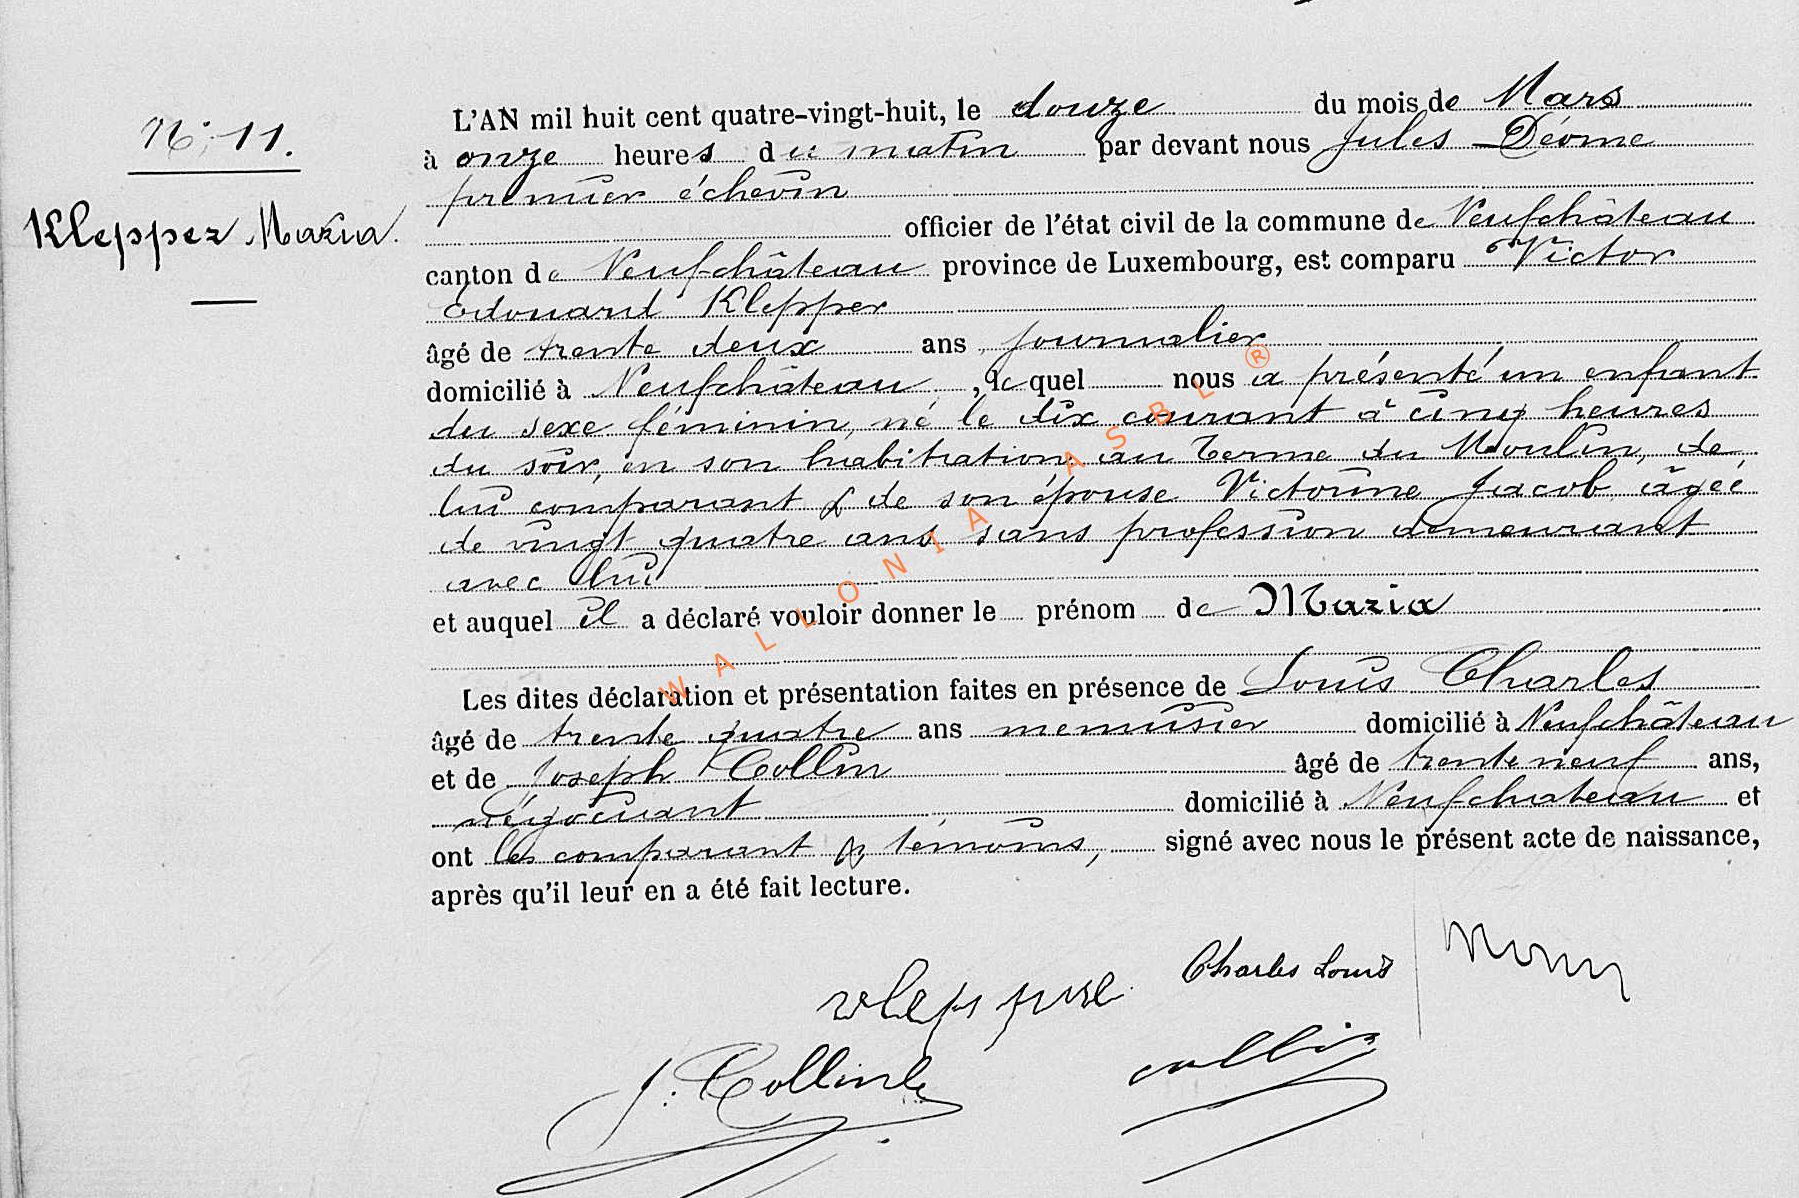 N° 11.
Klepper Maria.
L'AN mil huit cent quatre-vingt-huit, le douze du mois de Mars
à onze heures du matin par devant nous Jules Déome
premier échevin
officier de l'état civil de la commune de Neufchâteau
canton de Neufchâteau province de Luxembourg, est comparu Victor
Edouard Klepper
âgé de trente deux ans journalier
domicilié à Neufchâteau, lequel nous a présenté un enfant
du sexe féminin, né le dix courant à cinq heures
du soir, en son habitation au Terme du Moulin, de
lui comparant & de son épouse Victorine Jacob, âgée
de vingt quatre ans sans profession demeurant
avec lui
et auquel il a déclaré vouloir donner le prénom de Maria
Les dites déclaration et présentation faites en présence de Louis Charles
âgé de trente quatre ans menuisier domicilié à Neufchâteau
et de Joseph Collin âgé de trente neuf ans,
négociant domicilié à Neufchateau et
ont les comparant & témoins, signé avec nous le présent acte de naissance,
après qu'il leur en a été fait lecture.
Charles Louis
J. Collin
WALLONIA ASBL ®